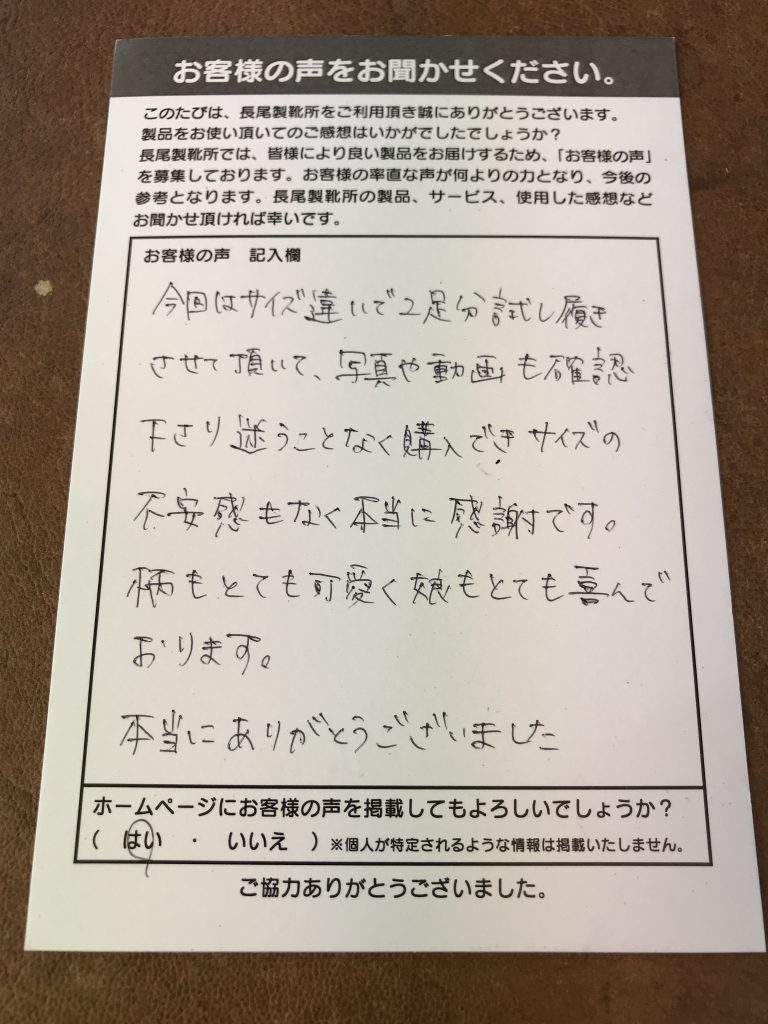 お客様の声をお聞かせください。
このたびは、長尾製靴所をご利用頂き誠にありがとうございます。
製品をお使い頂いてのご感想はいかがでしたでしょうか？
長尾製靴所では、皆様により良い製品をお届けするため、「お客様の声」
を募集しております。お客様の率直な声が何よりの力となり、今後の
参考となります。長尾製靴所の製品、サービス、使用した感想など
お聞かせ頂ければ幸いです。
お客様の声　記入欄
今回はサイズ違いで2足分試し履き
させて頂いて、写真や動画も確認
下さり迷うことなく購入できサイズの
不安感もなく本当に感謝です。
柄もとても可愛く娘もとても喜んで
おります。
本当にありがとうございました
ホームページにお客様の声を掲載してもよろしいでしょうか？
（　はい　・　いいえ　）※個人が特定されるような情報は掲載いたしません。
ご協力ありがとうございました。